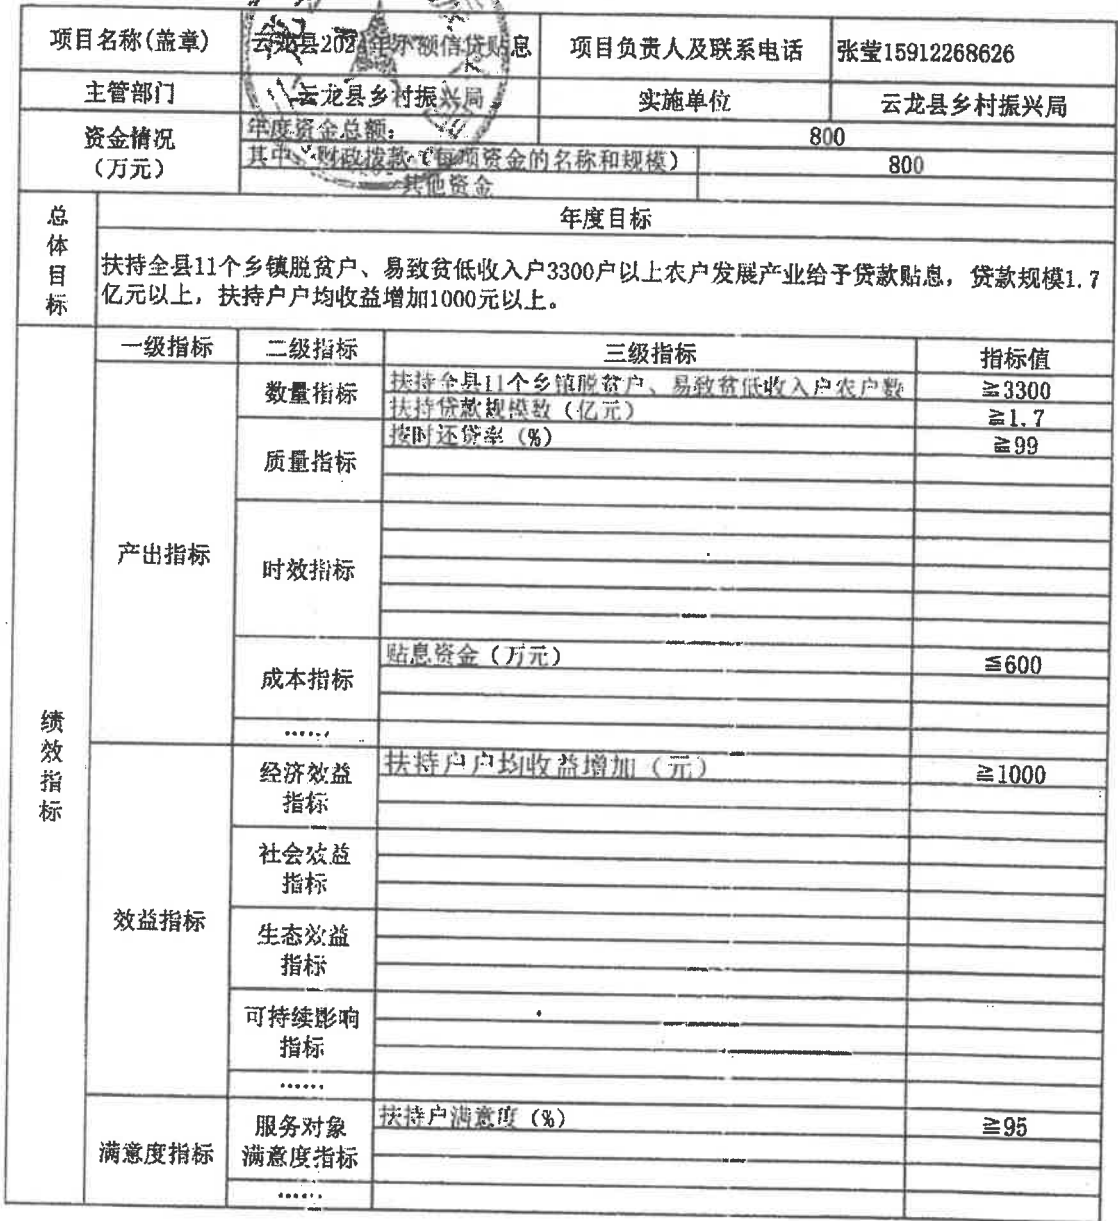 项目名称(盖章) 云龙县202 年 额信贷贴息 项目负责人及联系电话 张莹15912268626
主管部门 云龙县乡村振兴局 实施单位 云龙县乡村振兴局
资金情况
（万元）
年度资金总额： 800
其中：财政拨款（每项资金的名称和规模） 800
其他资金
总体目标
年度目标
扶持全县11个乡镇脱贫户、易致贫低收入户3300户以上农户发展产业给予贷款贴息，贷款规模1.7
亿元以上，扶持户户均收益增加1000元以上。
绩效指标
一级指标 二级指标 三级指标 指标值
产出指标
数量指标 扶持全县11个乡镇脱贫户、易致贫低收入户农户数 ≧3300
扶持贷款规模数（亿元） ≧1.7
质量指标 按时还贷率（%） ≧99
时效指标
成本指标 贴息资金（万元） ≦600
……
效益指标
经济效益
指标
扶持户户均收益增加（元） ≧1000
社会效益
指标
生态效益
指标
可持续影响
指标
……
满意度指标
服务对象
满意度指标
扶持户满意度（%） ≧95
……